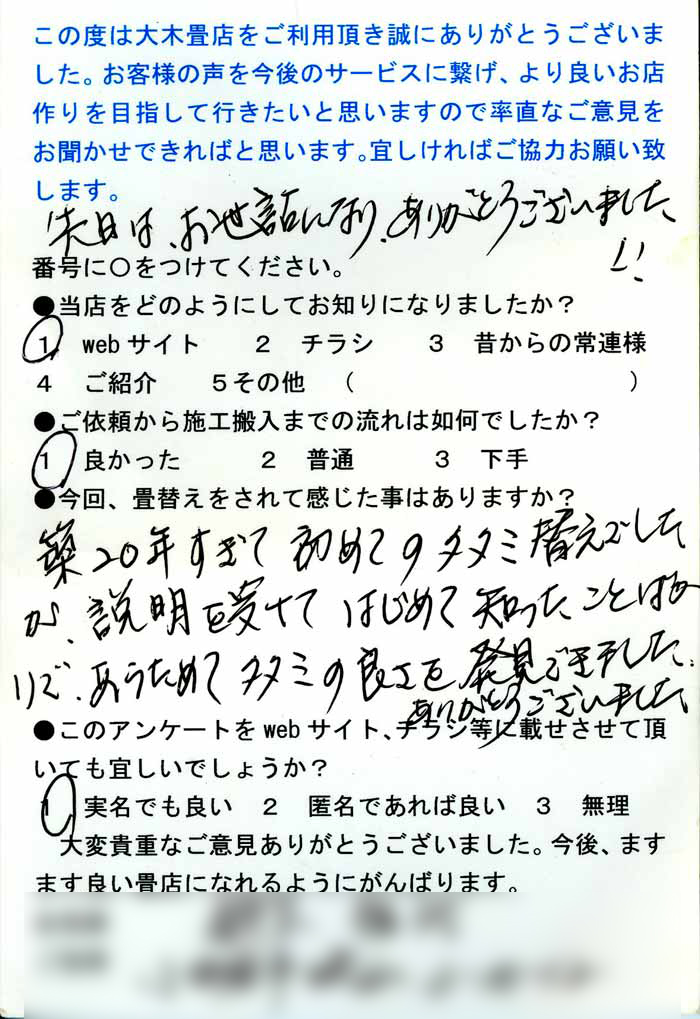 この度は大木畳店をご利用頂き誠にありがとうございま
した。お客様の声を今後のサービスに繋げ、より良いお店
作りを目指して行きたいと思いますので率直なご意見を
お聞かせできればと思います。宜しければご協力お願い致
します。
先日は、お世話になり、ありがとうございました
!!
番号に○をつけてください。
●当店をどのようにしてお知りになりましたか？
1 webサイト 2 チラシ 3 昔からの常連様
4 ご紹介 5その他 （ ）
●ご依頼から施工搬入までの流れは如何でしたか？
1 良かった 2 普通 3 下手
●今回、畳替えをされて感じた事はありますか？
築20年すぎて初めてのタタミ替えでした
が、説明を受けてはじめて知ったことばか
りで、あらためてタタミの良さを発見できました。
ありがとうございました。
●このアンケートをwebサイト、チラシ等に載せさせて頂
いても宜しいでしょうか？
1 実名でも良い 2 匿名であれば良い 3 無理
大変貴重なご意見ありがとうございました。今後、ます
ます良い畳店になれるようにがんばります。